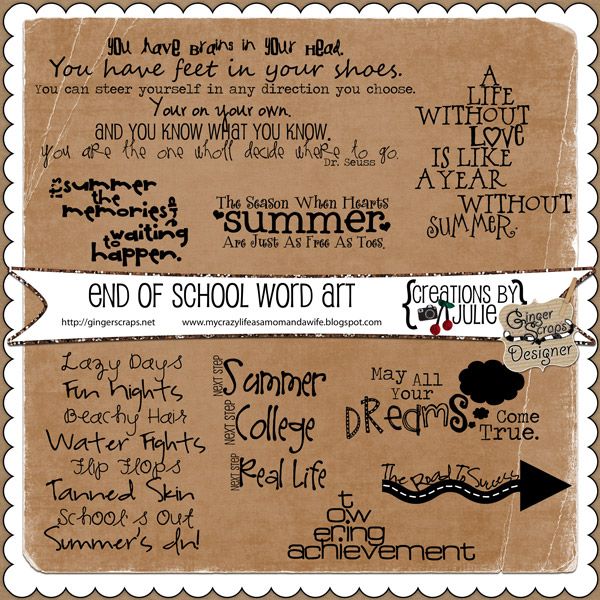 You have Brains in Your Head.
You have feet in your shoes.
You can steer yourself in any direction you choose.
Your on your own.
AND YOU KNOW WHAT YOU KNOW.
You are the one wholl decide where to go.
Dr. Seuss
A
LIFE
WITHOUT
LOVE
IS LIKE
A YEAR
WITHOUT
SUMMER.
It's
summer
the
memories are
waiting
to
happen.
The Season When Hearts
summer
Are Just As Free As Toes.
END OF SCHOOL WORD ART
http://gingerscraps.net
www.mycrazylifeasamomandawife.blogspot.com
{CREATIONS BY
JULIE}
Ginger
Scraps
Designer
Lazy Days
Fun Nights
Beachy Hair
Water Fights
Flip Flops
Tanned Skin
School's Out
Summer's In!
NEXT STEP
Summer
NEXT STEP
College
NEXT STEP
Real Life
May All
Your
DREAMS.
Come
True.
The Road To Success
t
o.w
er.ing
achievement